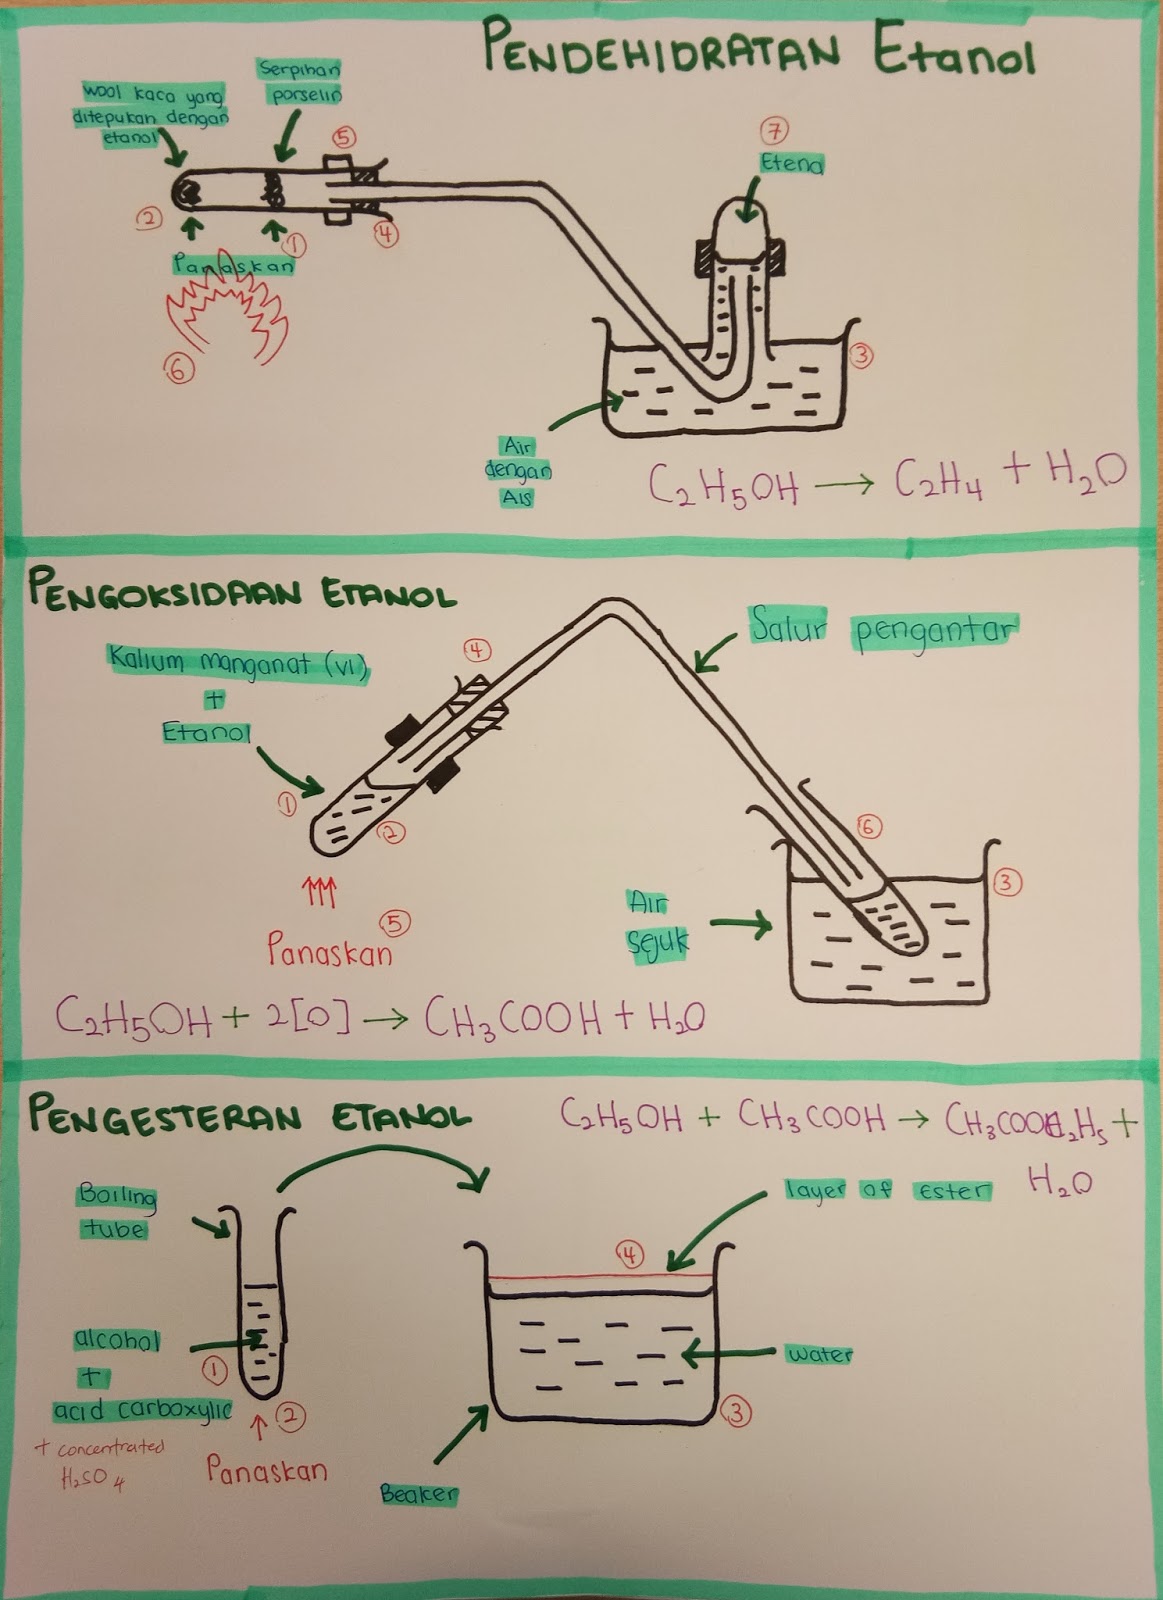 PENDEHIDRATAN Etanol
Serpihan
porselin
wool kaca yang
ditepukan dengan
etanol
5
7
Etena
2
1
4
Panaskan
6
3
Air
dengan
Ais
C2H5OH → C2H4 + H2O
PENGOKSIDAAN ETANOL
Salur pengantar
4
Kalium manganat (VI)
+
Etanol
1
2
6
3
Air
sejuk
5
Panaskan
C2H5OH + 2[O] → CH3COOH + H2O
PENGESTERAN ETANOL
C2H5OH + CH3COOH → CH3COOC2H5 +
H2O
Boiling
tube
layer of ester
4
alcohol
+
acid carboxylic
1
water
2
3
+ concentrated
H2SO4
Panaskan
Beaker